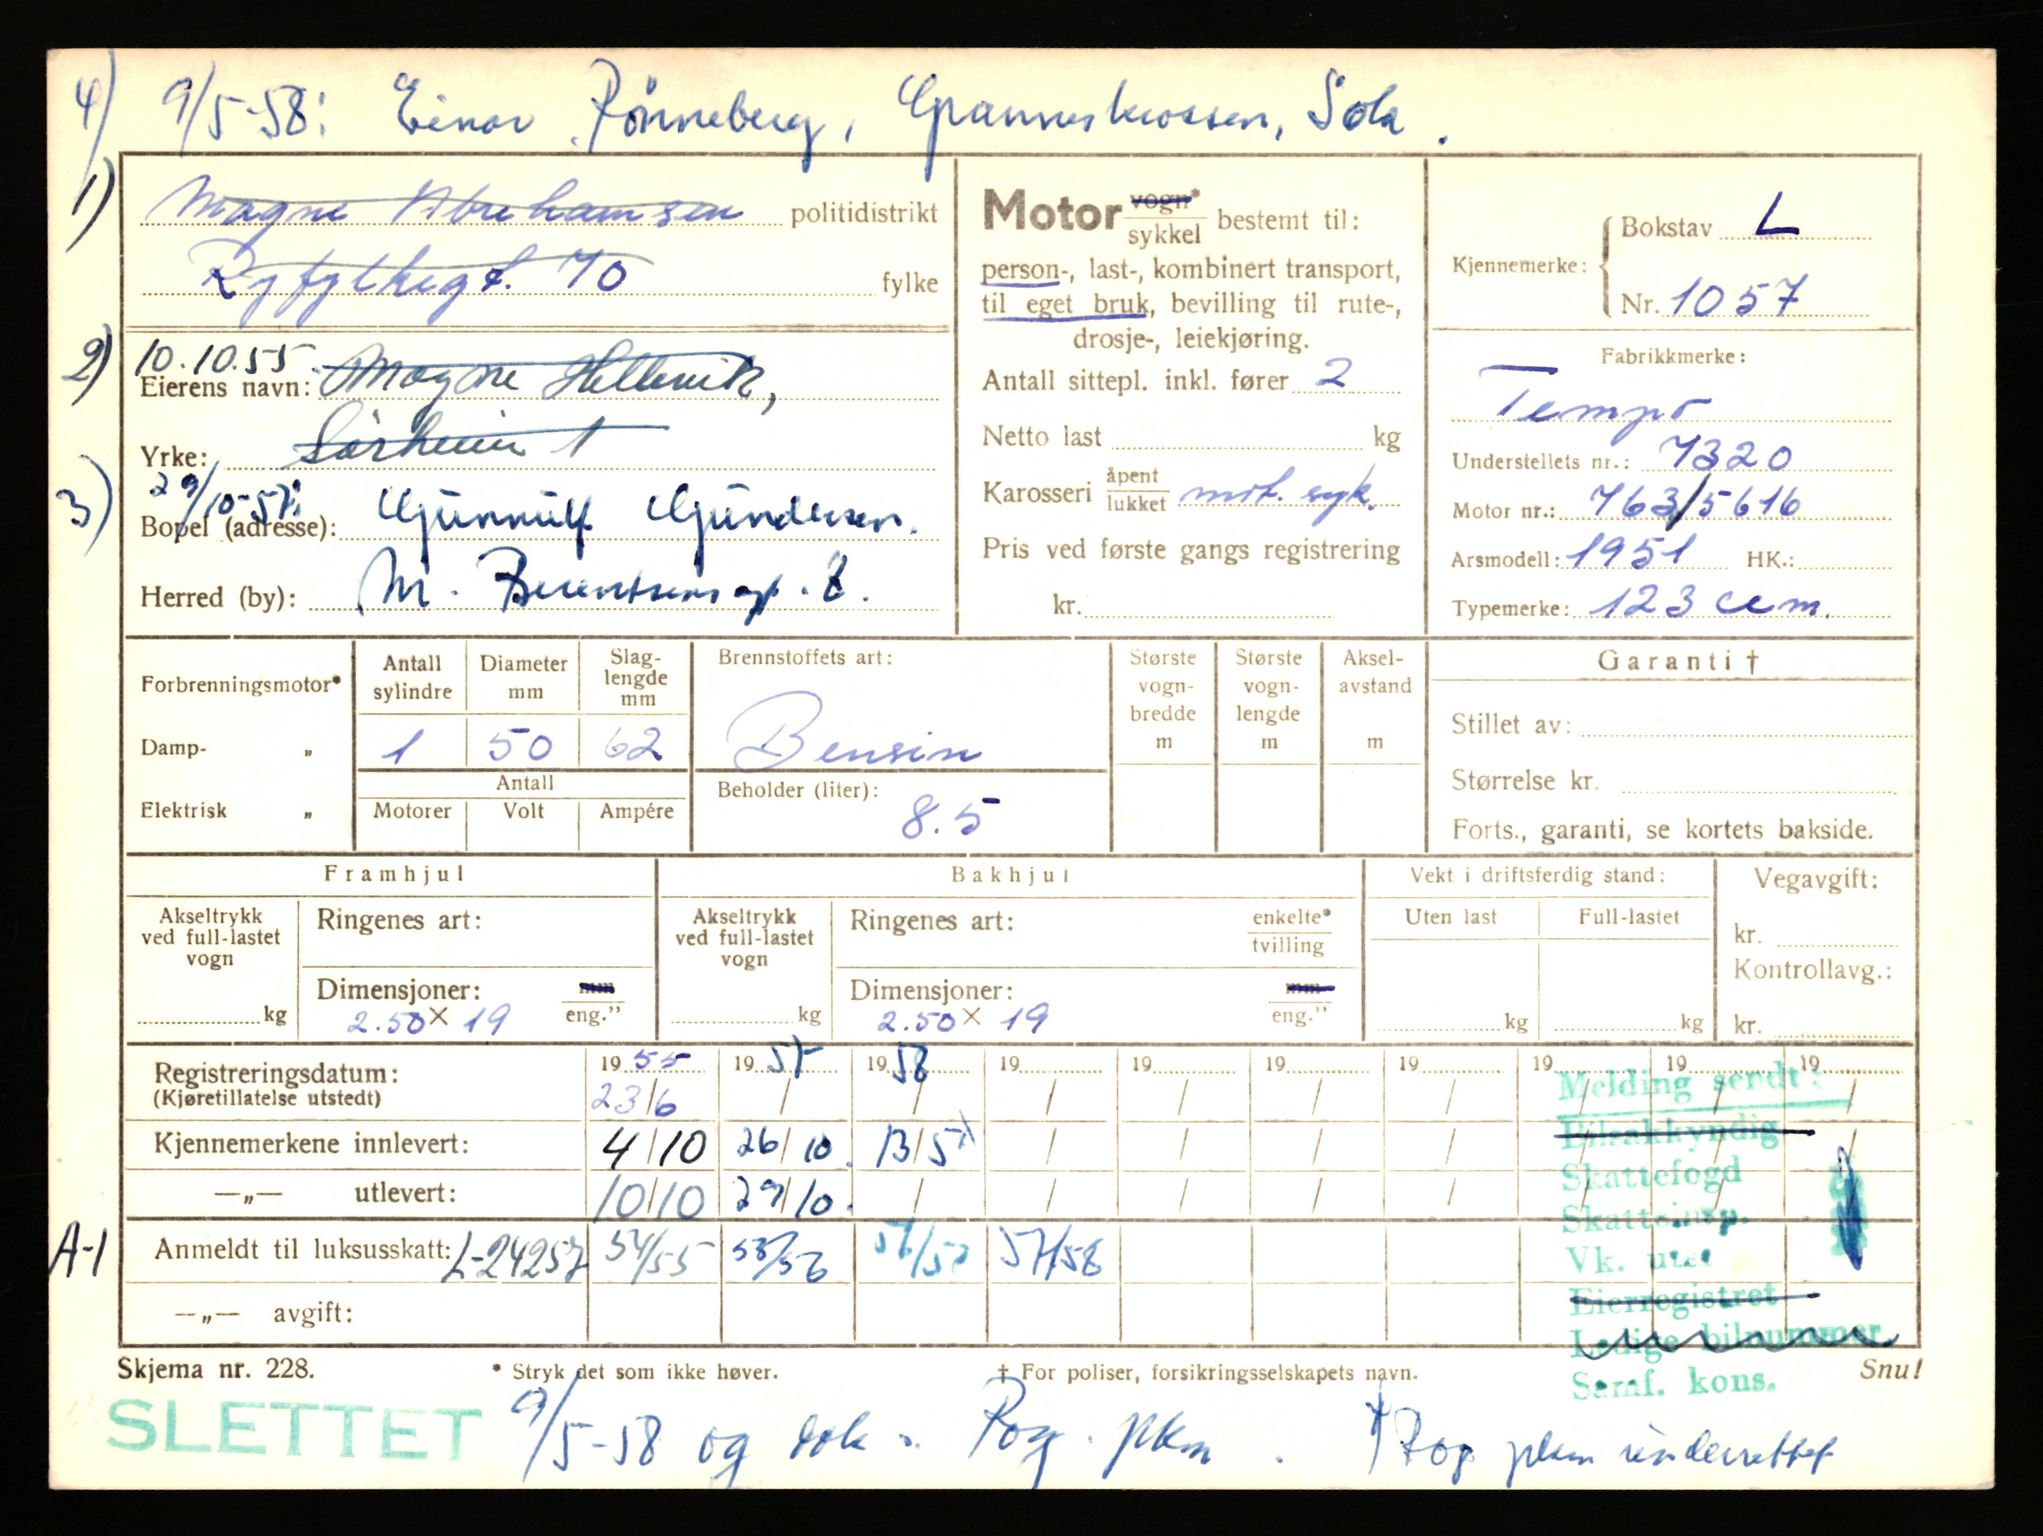 4) 9/5-58: Einar Rønneberg, Granneskrossen, Sola.
1) Magne Abrahamsen politidistrikt
Ryfylkegt. 70 fylke
2) 10.10.55. Magne Hellevik,
Eierens navn:
Yrke: Sørheim
3) 29/10-57: Gunnulf Gundersen.
Bopel (adresse):
Herred (by): M. Berentsensgt. 8.
Motor vogn* sykkel bestemt til:
person-, last-, kombinert transport,
til eget bruk, bevilling til rute-,
drosje-, leiekjøring.
Antall sittepl. inkl. fører 2
Netto last kg
Karosseri åpent lukket mot. syk.
Pris ved første gangs registrering
kr.
Kjennemerke: Bokstav L
Nr. 1057
Fabrikkmerke:
Tempo
Understellets nr.: 7320
Motor nr.: 763/5616
Arsmodell: 1951 HK.:
Typemerke: 123 ccm.
Forbrenningsmotor*
Damp- „
Elektrisk „
Antall sylindre
1
Diameter mm
50
Slag-lengde mm
62
Antall
Motorer Volt Ampére
Brennstoffets art:
Bensin
Beholder (liter):
8.5
Største vogn-bredde m
Største vogn-lengde m
Aksel-avstand m
Garanti †
Stillet av:
Størrelse kr.
Forts., garanti, se kortets bakside.
Framhjul
Akseltrykk ved full-lastet vogn
kg
Ringenes art:
Dimensjoner: mm eng.”
2.50 x 19
Bakhjul
Akseltrykk ved full-lastet vogn
kg
Ringenes art: enkelte* tvilling
Dimensjoner: mm eng.”
2.50 x 19
Vekt i driftsferdig stand:
Uten last Full-lastet
kg kg
Vegavgift:
kr.
Kontrollavg.:
kr.
Registreringsdatum: 1955 1957 1958 19 19 19 19 19 19 19
(Kjøretillatelse utstedt) 23/6
Kjennemerkene innlevert: 4/10 26/10. 13/5
—„— utlevert: 10/10 29/10.
A-1 Anmeldt til luksusskatt: L-24257 54/55 55/56 56/57 57/58
—„— avgift:
Melding sendt:
Bilsakkyndig
Skattefogd
Skatteinsp.
Vk. utst
Eierregistret
Ledige bilnummer
Samf. kons.
Skjema nr. 228.
* Stryk det som ikke høver.
† For poliser, forsikringsselskapets navn.
Snu!
SLETTET
9/5-58 og dok. Rog. pkm.
Rog pkm underrettet